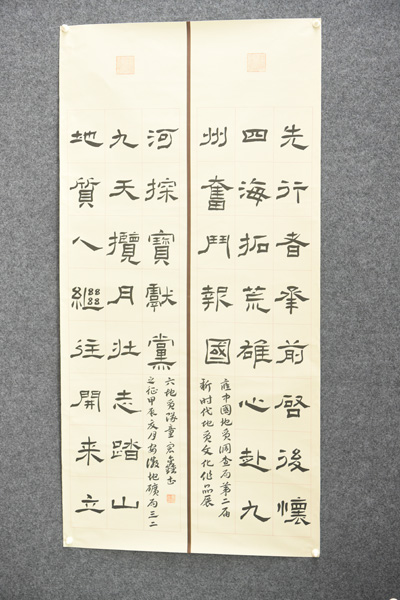 先行者承前啓後懷
四海拓荒雄心赴九
州奮鬥報國
應中國地质调查局第二届
新时代地质文化作品展
地質人繼往開來立
九天攬月壯志踏山
河探寶獻黨
之征甲辰亥月安徽地礦局三二
六地质隊童宏鑫书